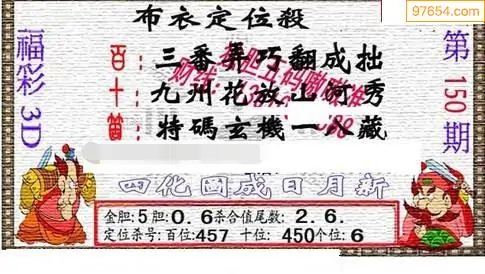 97654.com
布衣定位殺
福彩3D
第150期
百：三番弄巧翻成拙
十：九州花放山河秀
箇：特碼玄機一八藏
四化國成日月新
金胆:5胆:0.6杀合值尾数:2.6.
定位杀号:百位:457 十位:450个位:6